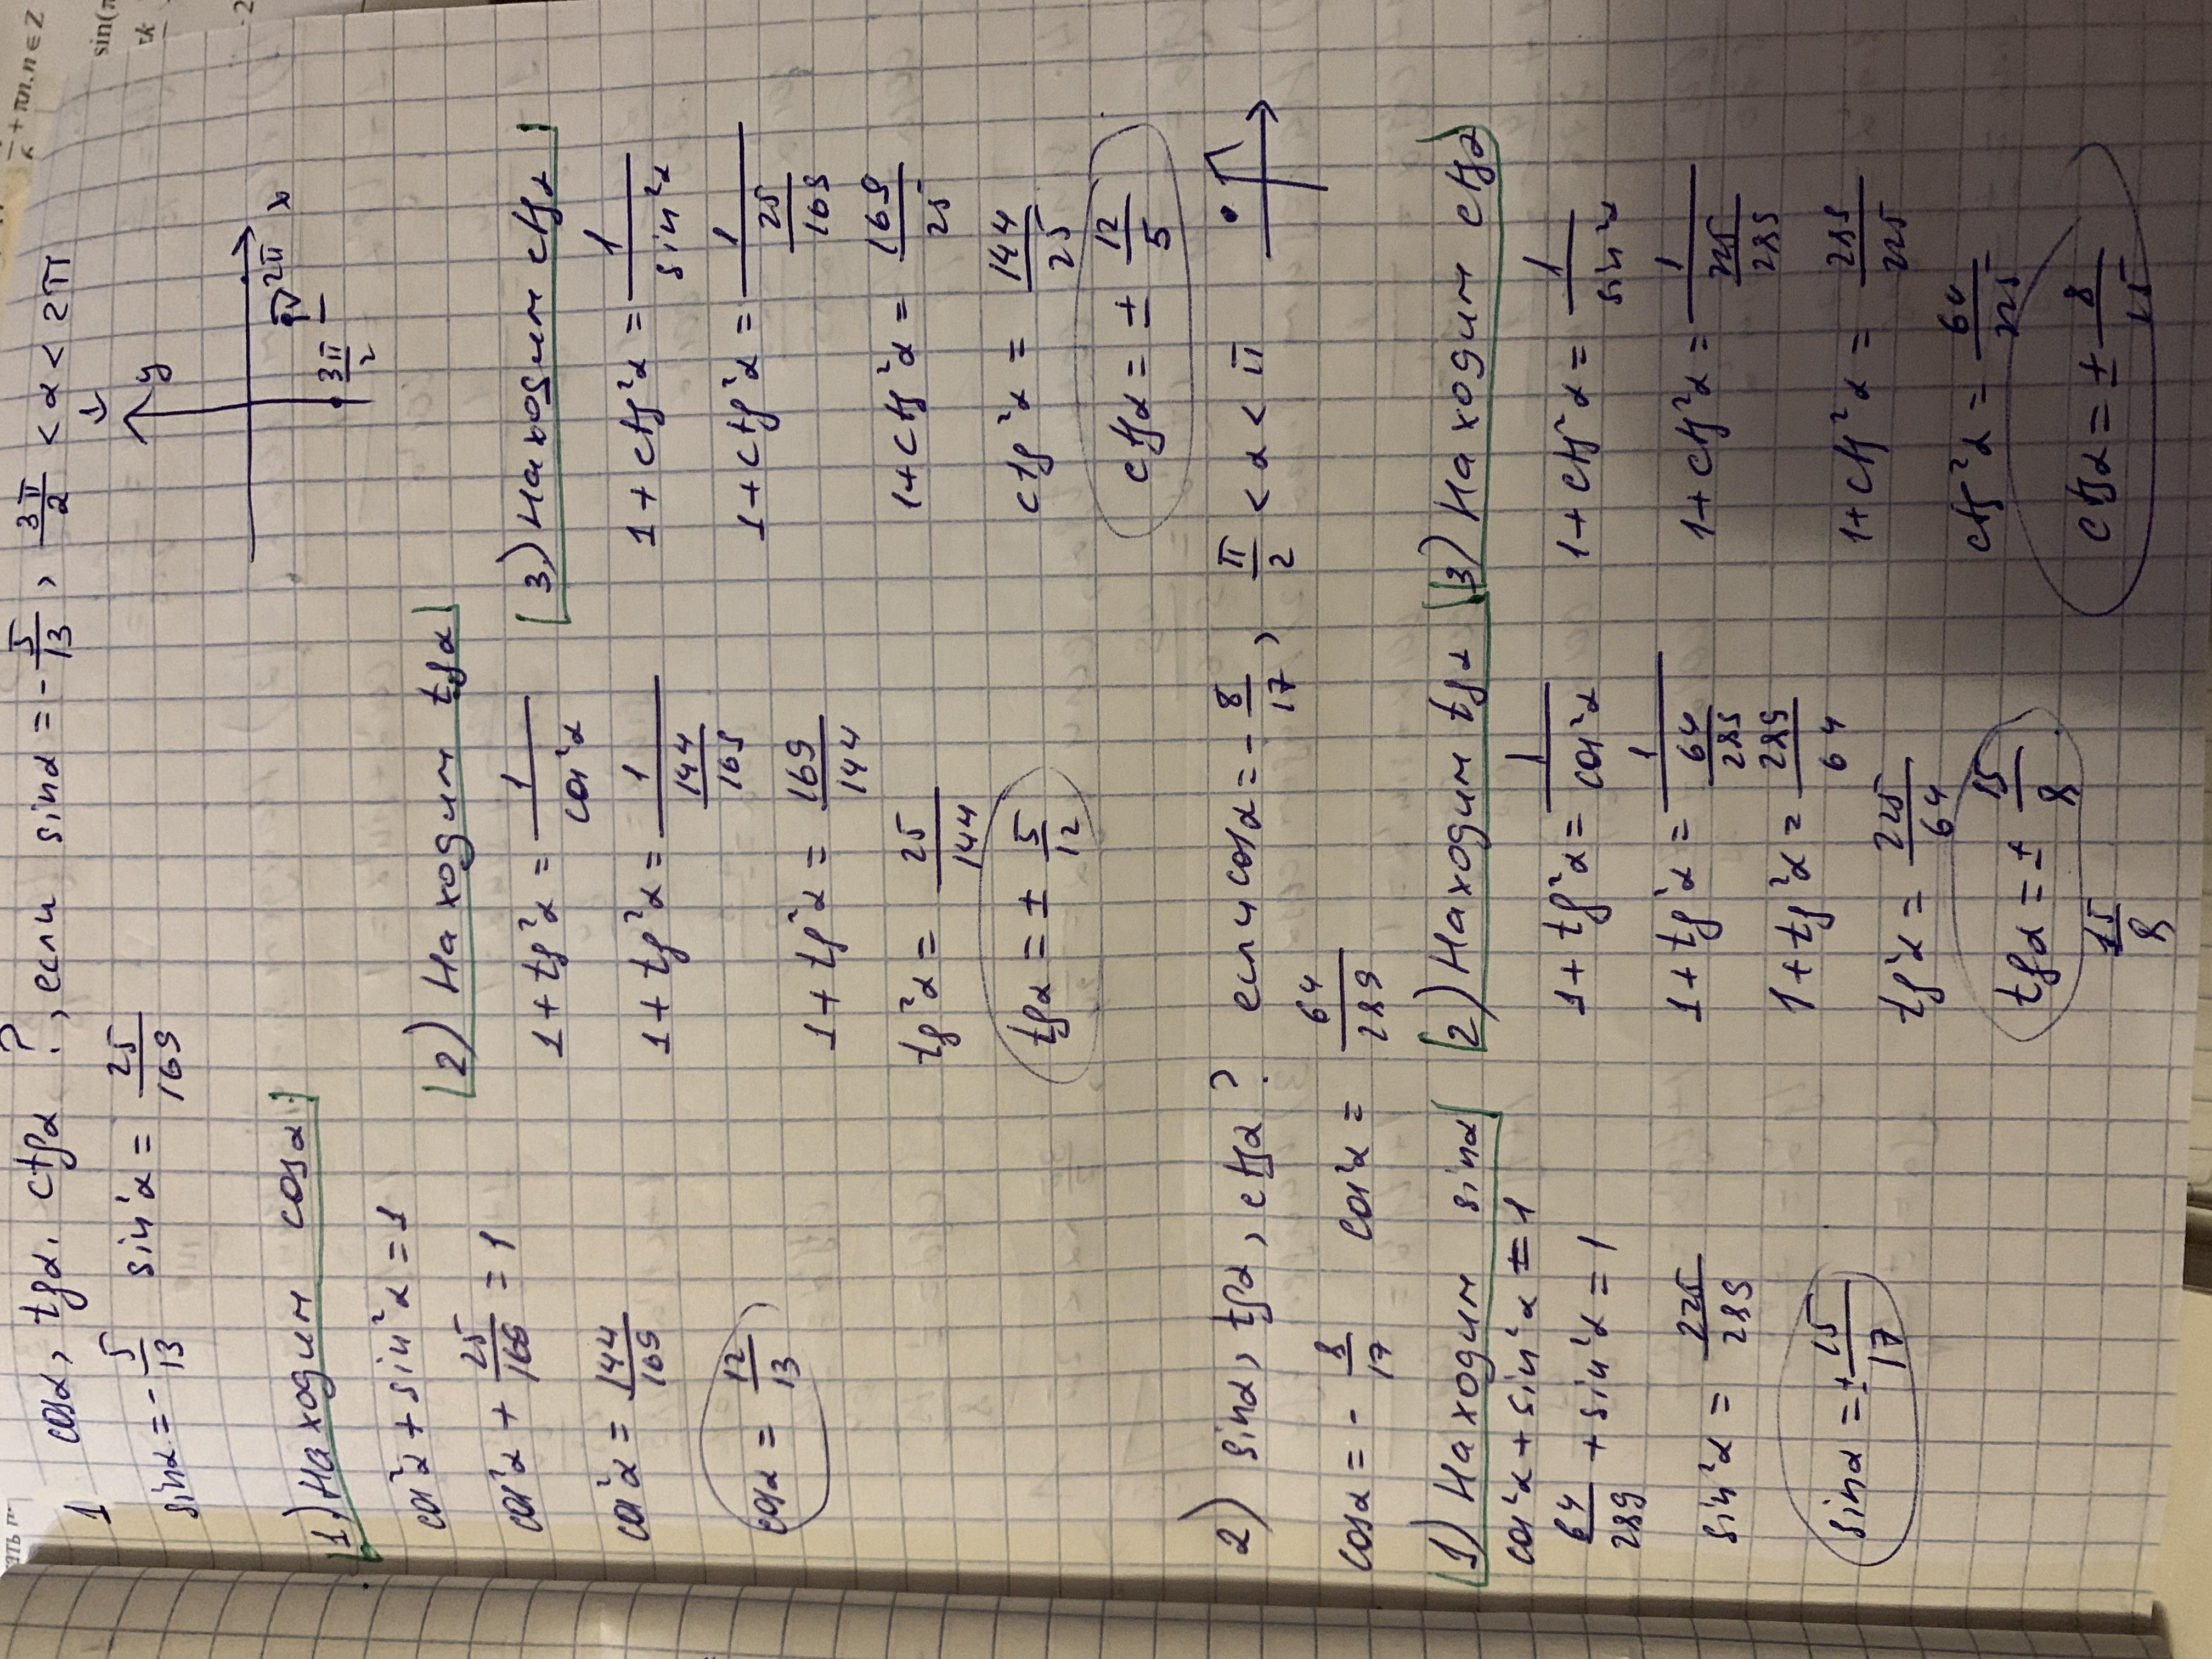 1 cosα, tgα, ctgα ?, если sinα = - 5/13, 3π/2 < α < 2π
sinα = - 5/13 sin²α = 25/169
y
x
3π/2
2π
1) Находим cosα
cos²α + sin²α = 1
cos²α + 25/169 = 1
cos²α = 144/169
cosα = 12/13
2) Находим tgα
1 + tg²α = 1/cos²α
1 + tg²α = 1/(144/169)
1 + tg²α = 169/144
tg²α = 25/144
tgα = ± 5/12
3) Находим ctgα
1 + ctg²α = 1/sin²α
1 + ctg²α = 1/(25/169)
1 + ctg²α = 169/25
ctg²α = 144/25
ctgα = ± 12/5
2) sinα, tgα, ctgα? если cosα = - 8/17, π/2 < α < π
cosα = - 8/17 cos²α = 64/289
1) Находим sinα
cos²α + sin²α = 1
64/289 + sin²α = 1
sin²α = 225/289
sinα = ± 15/17
2) Находим tgα
1 + tg²α = 1/cos²α
1 + tg²α = 1/(64/289)
1 + tg²α = 289/64
tg²α = 225/64
tgα = ± 15/8
15/8
3) Находим ctgα
1 + ctg²α = 1/sin²α
1 + ctg²α = 1/(225/289)
1 + ctg²α = 289/225
ctg²α = 64/225
ctgα = ± 8/15
+ πn, n ∈ Z